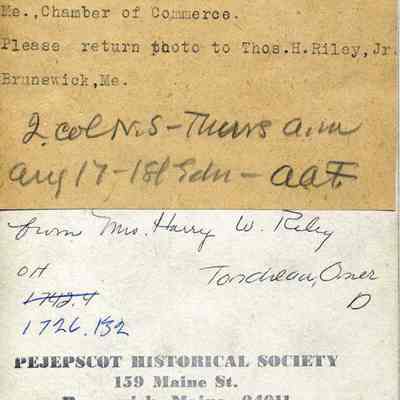 Me.,Chamber of Commerce.
Please return photo to Thos.H.Riley,Jr.
Brunswick,Me.
2 col N.S - Thurs a.m
Aug 17 - 1st Edn - a.a.F.
from Mrs. Harry W. Riley
OH
Tondreau, Omer
1742.4
D
1726.132
PEJEPSCOT HISTORICAL SOCIETY
159 Maine St.
Brunswick, Maine 04011